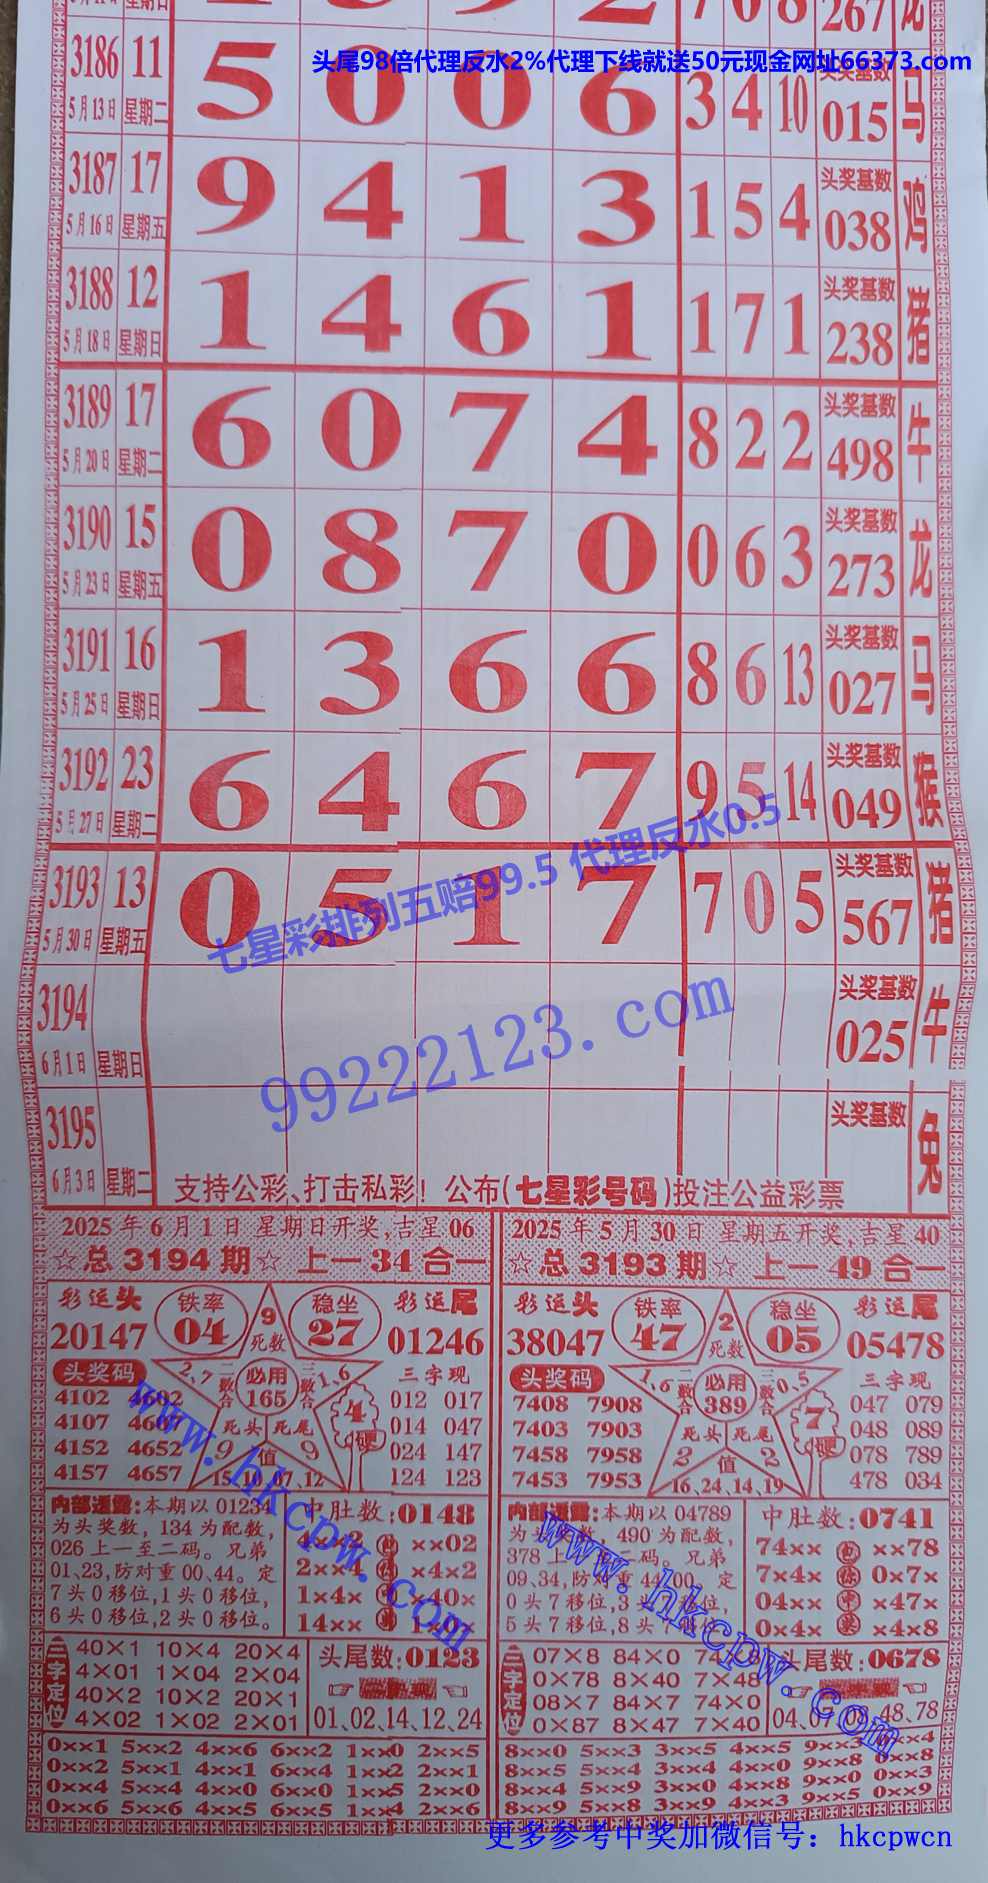 267 龙
头尾98倍代理反水2%代理下线就送50元现金网址66373.com
3186 11 5 0 0 6 3 4 10 头奖基数 015 马
5月13日 星期二
3187 17 9 4 1 3 1 5 4 头奖基数 038 鸡
5月16日 星期五
3188 12 1 4 6 1 1 7 1 头奖基数 238 猪
5月18日 星期日
3189 17 6 0 7 4 8 2 2 头奖基数 498 牛
5月20日 星期二
3190 15 0 8 7 0 0 6 3 头奖基数 273 龙
5月23日 星期五
3191 16 1 3 6 6 8 6 13 头奖基数 027 马
5月25日 星期日
3192 23 6 4 6 7 9 5 14 头奖基数 049 猴
5月27日 星期二
3193 13 0 5 1 7 7 0 5 头奖基数 567 猪
5月30日 星期五
七星彩排列五赔99.5 代理反水0.5
3194 头奖基数 025 牛
6月1日 星期日
99222123.com
3195 头奖基数 兔
6月3日 星期二
支持公彩、打击私彩！公布(七星彩号码)投注公益彩票
2025年6月1日 星期日开奖,吉星06
☆总3194期☆ 上一34合一
彩运头 铁率 9 稳坐 彩运尾
20147 04 死数 27 01246
头奖码 2,7 二数合 必用 165 三数合 1,6 三字现
4102 4602 012 017
4107 4607 死头 死尾 4 014 047
4152 4652 9 值 9 硬 024 147
4157 4657 15,10,07,12 124 123
内部透露:本期以01234
为头奖数，134为配数，
026上一至二码。兄弟
01,23,防对重00、44。定
7头0移位,1头0移位,
6头0移位,2头0移位。
中肚数:0148
4××2 ××02
2××4 ×4×2
1×4× ×40×
14××
三字定位
40×1 10×4 20×4
4×01 1×04 2×04
40×2 10×2 20×1
4×02 1×02 2×01
头尾数:0123
01、02、14、12、24
0××1 5××2 4××6 6××2 1××0 2××5
0××2 5××1 4××1 6××4 1××2 2××1
0××4 5××4 4××0 6××0 1××5 2××0
0××6 5××6 4××5 6××5 1××4 2××6
2025年5月30日 星期五开奖,吉星40
☆总3193期☆ 上一49合一
彩运头 铁率 2 稳坐 彩运尾
38047 47 死数 05 05478
头奖码 1,6 二数合 必用 389 三数合 0,5 三字现
7408 7908 047 079
7403 7903 死头 死尾 7 048 089
7458 7958 2 值 2 硬 078 789
7453 7953 16,24,14,19 478 034
内部透露:本期以04789
为头奖数，490为配数，
378上一至二码。兄弟
09,34,防对重44、00。定
0头7移位,3头7移位,
5头7移位,8头7移位。
中肚数:0741
74×× 包 ××78
7×4× 你 0×7×
04×× 中 ×47×
0×4× 奖 ×4×8
三字定位
07×8 84×0 74×8
0×78 8×40 7×48
08×7 84×7 74×0
0×87 8×47 7×40
头尾数:0678
04、07、08、48、78
8××0 5××3 3××5 4××5 9××3 0××4
8××5 5××4 3××4 4××0 9××8 0××8
8××4 5××9 3××0 4××8 9××0 0××3
8××9 5××8 3××9 4××3 9××5 0××9
www.hkcpw.com
www.hkcpw.com
更多参考中奖加微信号：hkcpwcn